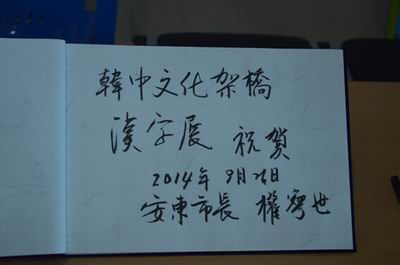 韓中文化架橋
漢字展 祝賀
2014年 9月26日
安東市長 權寧世